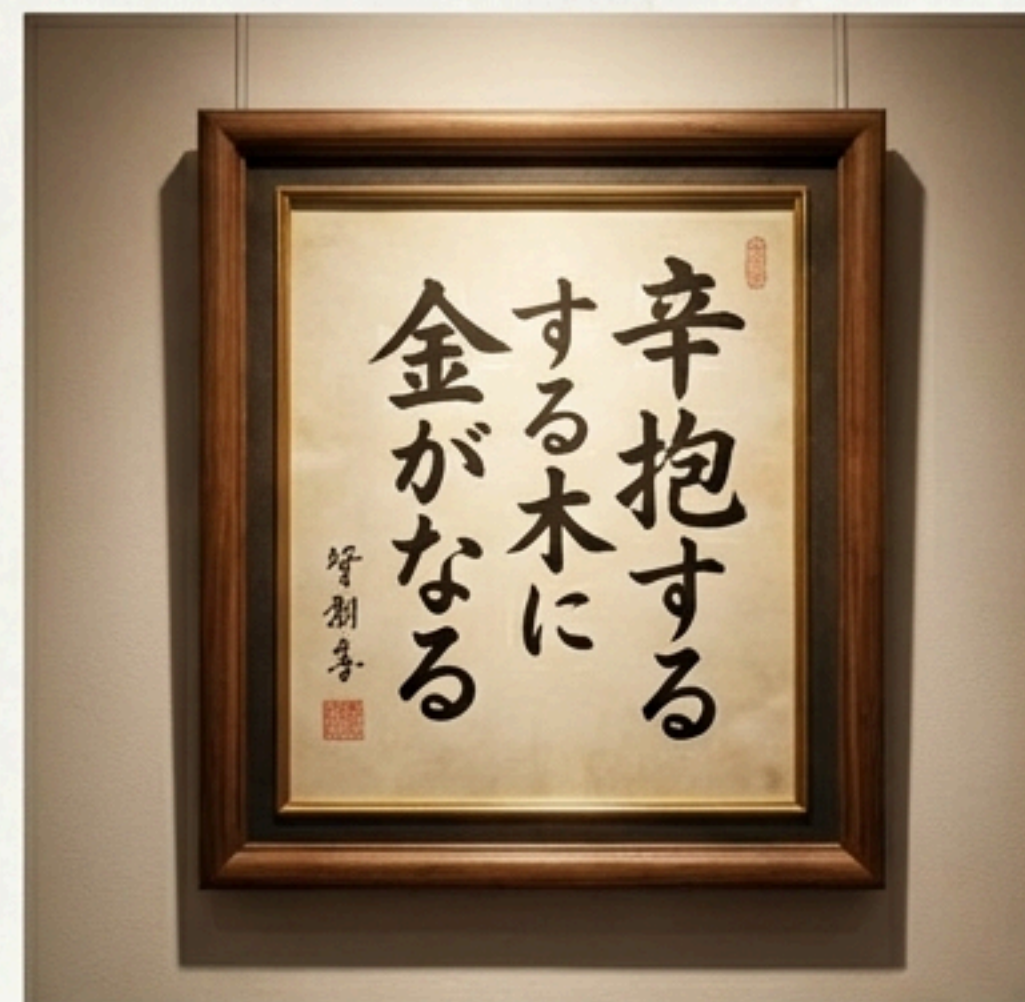 辛抱する
する木に
金がなる